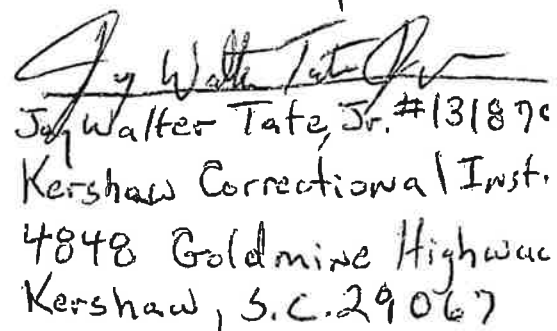 Jay Walter Tate Jr.
Jay Walter Tate, Jr. #13187
Kershaw Correctional Inst.
4848 Goldmine Highwa
Kershaw, S.C. 29067